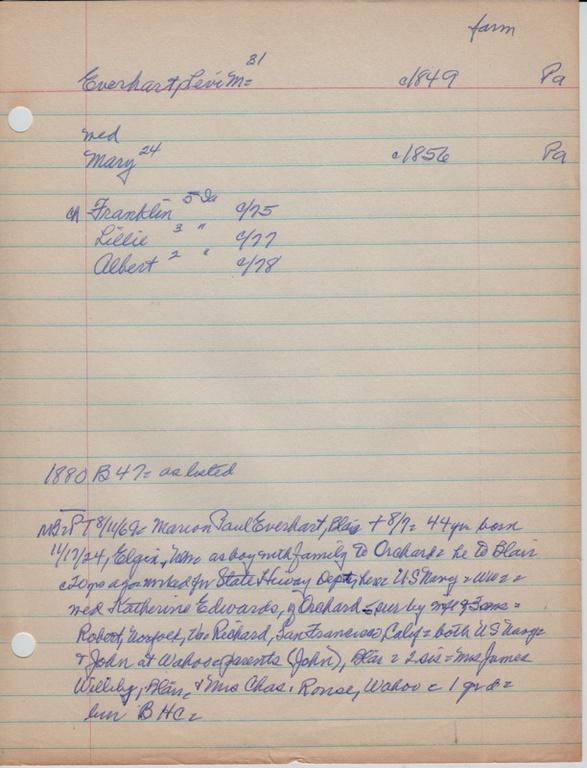 farm
Everhart, Levi M= 31 c1849 Pa
med
Mary 24 c1856 Pa
ch Franklin 5 Ia c/75
Lillie 3 " c/77
Albert 2 " c/78
1880 B 47= as listed
8/11/69= Marion Paul Everhart, Blair + 8/9= 44 yr born
11/17/24, Elgin, Nebr as boy with family to Orchard= he to Blair
c20 yrs ago worked for State Hiway Dept, here US Navy= WW2=
med Katherine Edwards, of Orchard= sur by wife & 3 sons=
Robert, Norfolk, Va= Richard, San Francisco, Calif= both US Navy=
& John at Wahoo= parents (John), Blair= 2 sis= Mrs James
Blair, & Mrs Chas. Wahoo= 1 grd=
bur B HC=